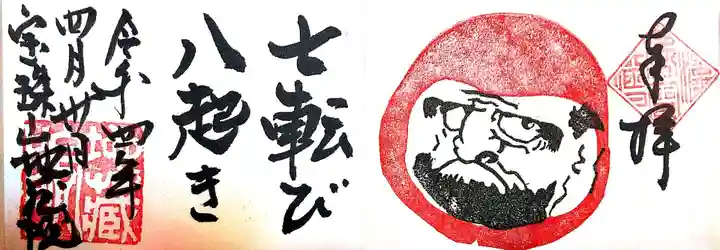 奉拝
七転び
八起き
令和四年
四月廿九日
宝珠山